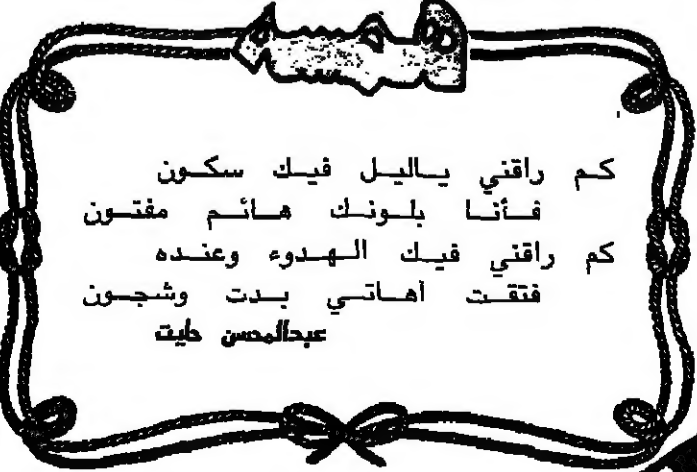 كم راقني ياليل فيك سكون
فأنا بلونك هائم مفتون
كم راقني فيك الهدوء وعنده
فتقت أهاتي بدت وشجون
عبدالمحسن حليت